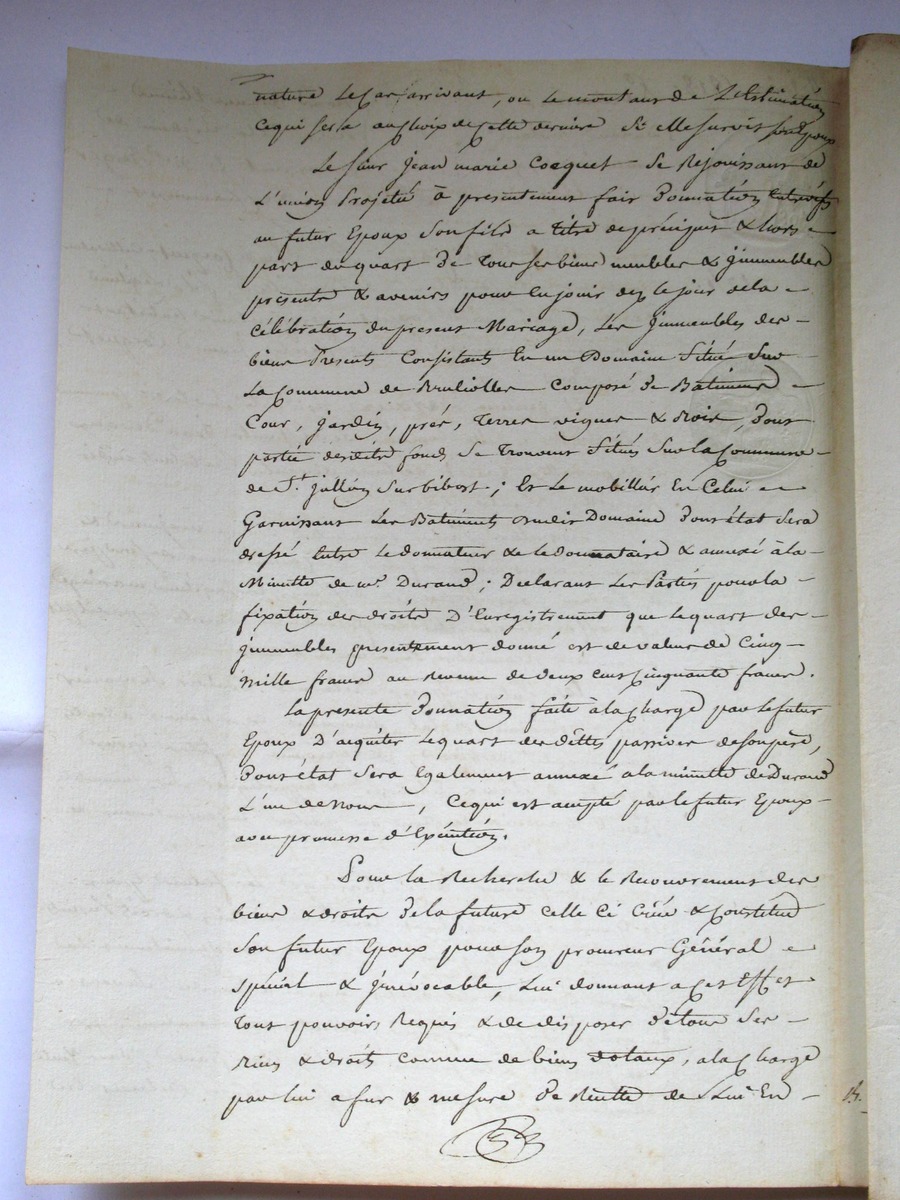 nature le cas arrivant, ou le montant de L'Estimation
ce qui sera au choix de Cette derniere Si elle survit son Epoux
Le sieur Jean marie Coquet Se Rejouissant de
L'union Projeté à presentement fair Donnation Entrevifs
au futur Epoux Son fils a Titre de préciput & hors
part du quart De Tous ses biens meubles & jmmeubles
présents & avenirs pour En jouir dez le jour de la
Célébration du present Mariage, Les jmmeubles des
biens Presents Consistants En un Domaine Situé Sur
La Commune de Brullolles Composé De Batiments
Cour, jardin, prés, terres vignes & Bois, Dont
partie desdits fonds Se Trouvent Situés Sur la Commune
de St. jullien Sur bibost; Et Le mobillier En Celui
Garnissant Les Batiments dudit Domaine Dont état Sera
dressé Entre Le donnateur & le donnataire & annexé à la
Minutte de me. Durand; Declarant Les Parties pour la
fixation des droits D'Enregistrement que Le quart des
jmmeubles presentement donné est de valeur de Cinq
mille francs au Revenu de deux cent Cinquante francs.
La presente Donnation faite à la Charge par le futur
Epoux D'aquiter Le quart des déttes passives de son père,
Dont état Sera Egalement annexé a la minutte de Durand
L'un de nous, Ce qui est acepté par le futur Epoux
avec promesse d'Exécution.
Pour la Recherche & le Recouvrement des
biens & droits De la future celle Ci Crée & Constitue
Son futur Epoux pour Son procureur Général
Spécial & jrrévocable, Lui donnant a Cet Effet
Tout pouvoirs Requis & de disposer De tous Ses
Biens & droits comme de biens dotaux, a la Charge
par lui a fur & mesure De Recette de Lui En